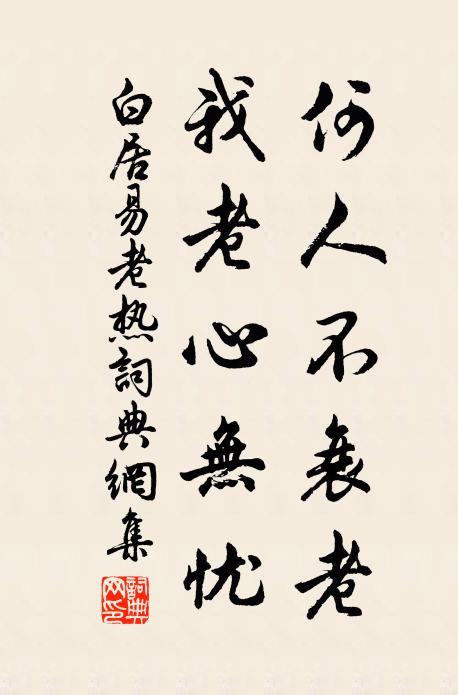 何人不衰老
我老心無忧
白居易老热詞典網集
詞典
网印